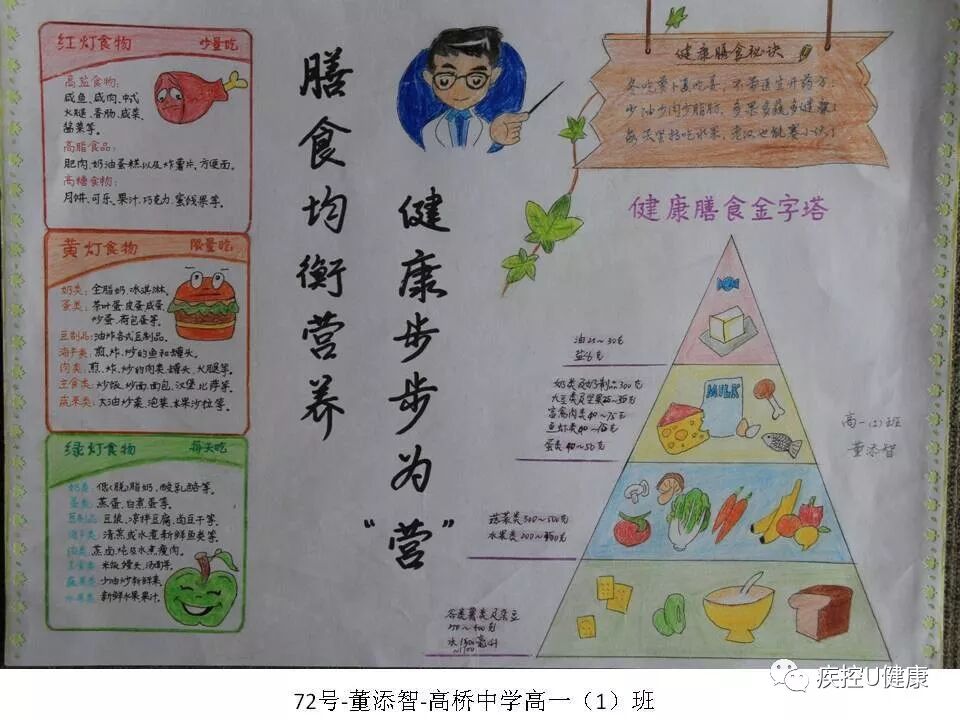 红灯食物 少量吃
高盐食物:
咸鱼、咸肉、中式
火腿、香肠、咸菜、
酱菜等。
高脂食品:
肥肉、奶油蛋糕以及炸薯片、方便面。
高糖食物:
月饼、可乐、果汁、巧克力、蜜饯果等。
黄灯食物 限量吃
奶类: 全脂奶、冰淇淋。
蛋类: 茶叶蛋、皮蛋、咸蛋、
炒蛋、荷包蛋等。
豆制品: 油炸各式豆制品。
海产类: 煎、炸、炒的鱼和罐头。
肉类: 煎、炸、炒的肉类、罐头、火腿等。
主食类: 炒饭、炒面、面包、汉堡、比萨等。
蔬果类: 大油炒菜、泡菜、水果沙拉等。
绿灯食物 每天吃
奶类: 低(脱)脂奶、酸乳酪等。
蛋类: 蒸蛋、白煮蛋等。
豆制品: 豆浆、凉拌豆腐、卤豆干等。
海产类: 清蒸或水煮新鲜鱼类等。
肉类: 蒸、卤、炖及水煮瘦肉。
主食类: 米饭、馒头、汤面等。
蔬菜类: 少油炒新鲜菜
水果类: 新鲜水果果汁。
膳食均衡营养
健康步步为“营”
健康膳食秘诀
冬吃萝卜夏吃姜,不劳医生开药方;
少油少肉少脂肪,多果多蔬多健康;
每天坚持吃水果,老汉也能赛小伙!
健康膳食金字塔
油25~30克
盐6克
奶类及奶制品300克
大豆类及坚果25~35克
畜禽肉类40~75克
鱼虾类40~75克
蛋类40~50克
MILK
蔬菜类300~500克
水果类200~350克
谷类薯类及杂豆
250~400克
水1500毫升
~1700
高一(1)班
董添智
疾控U健康
72号-董添智-高桥中学高一(1)班